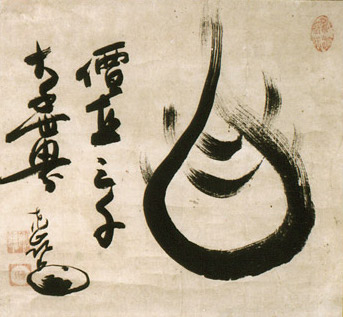 價直三千
大千世界